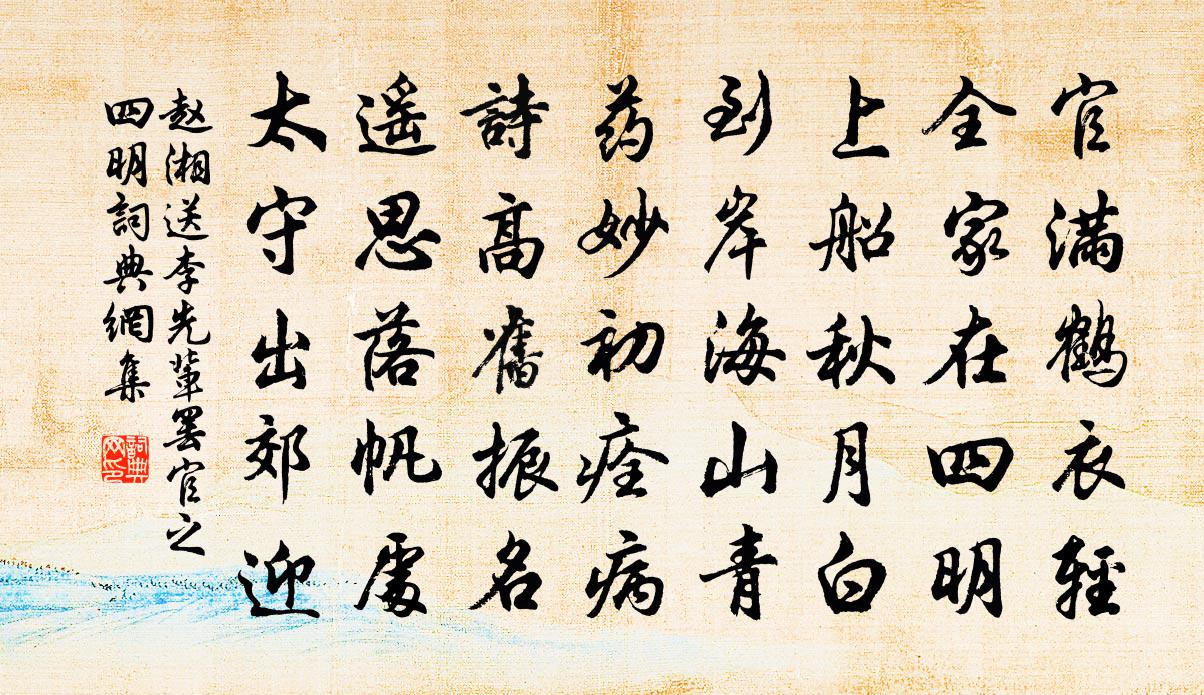 官满鹤衣轻
全家在四明
上船秋月白
到岸海山青
药妙初痊病
詩高舊振名
遥思落帆處
太守出郊迎
赵湘送李先輩罢官之
四明詞典網集
詞典
网印